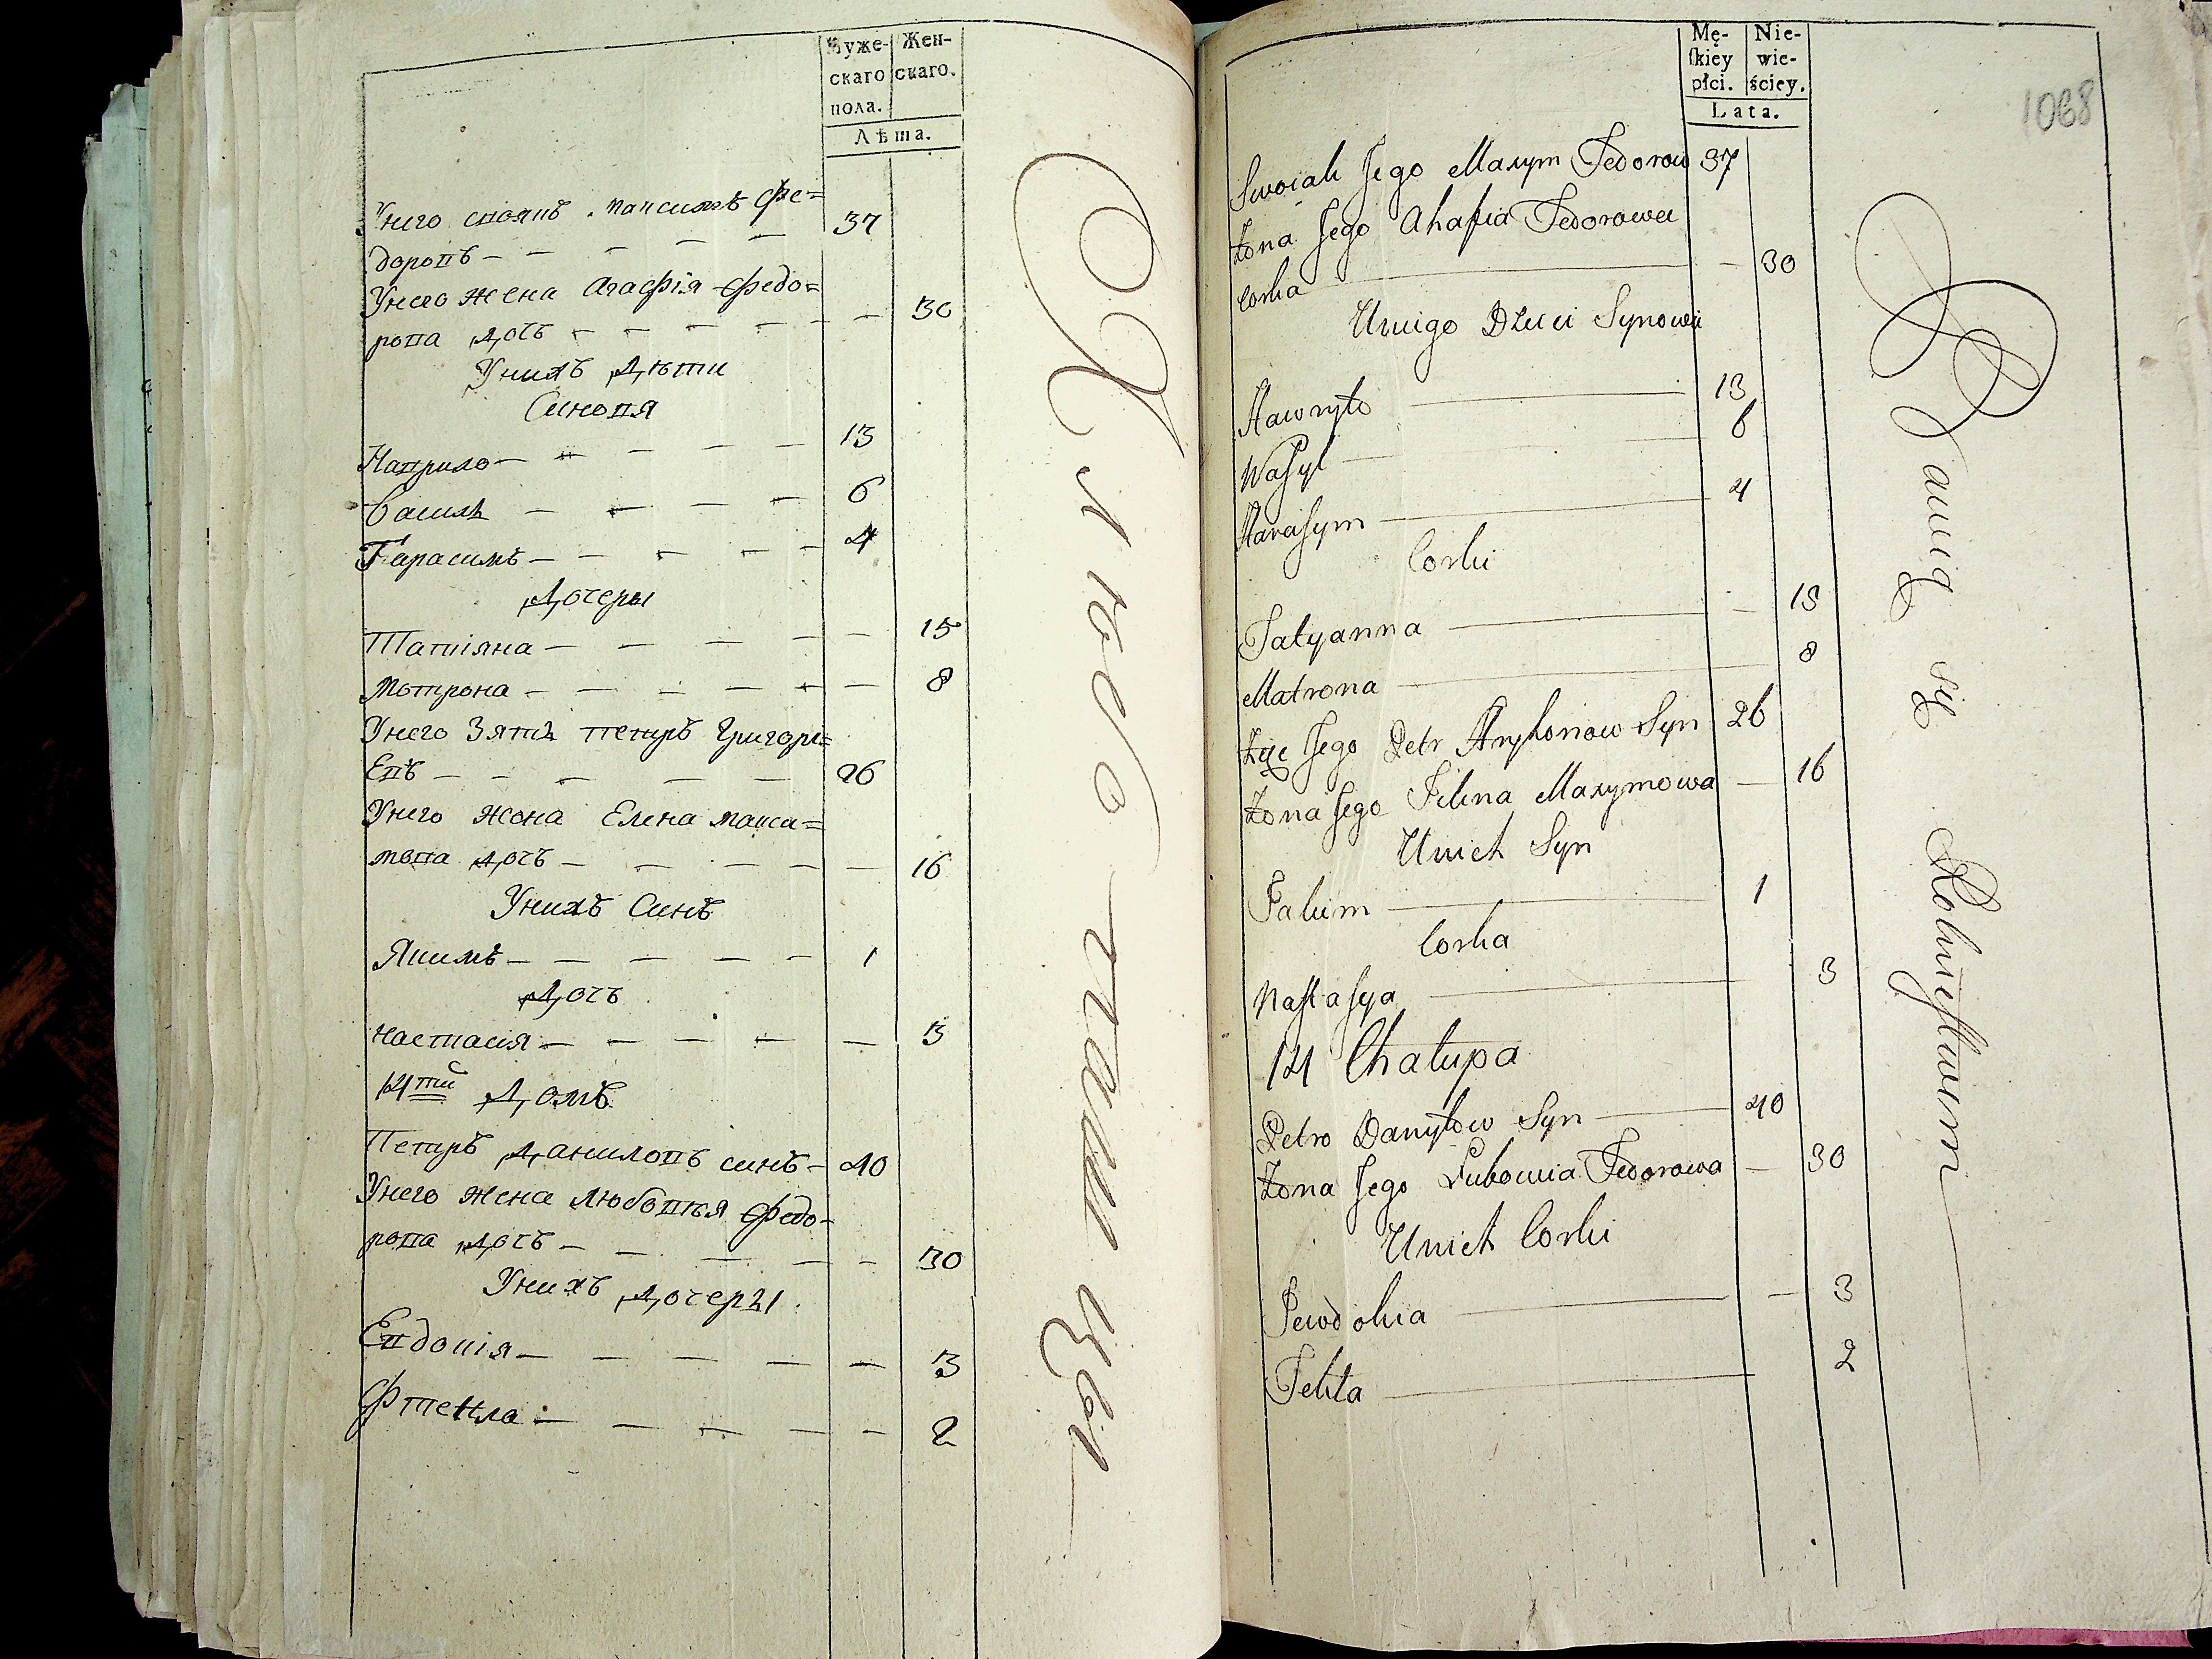 Мужескаго пола. Женскаго.
Лѣта.
Унего своякъ Максимъ Фе=
доровъ — 37
Унего жена Агафія Федо=
рова дочь — 30
Унихъ дѣти
Синовя
Гаврило — 13
Василь — 6
Герасимъ — 4
Дочеры
Татіяна — 15
Мотрона — 8
Унего Зять Петръ Григорі=
Евъ — 26
Унего жона Елена Макси=
мова дочь — 16
Унихъ Синъ
Якимъ — 1
Дочь
Настасія — 3
14тй Домъ
Петръ Даниловъ синъ — 40
Унего жена Любовья Федо=
рова дочь — 30
Унихъ дочеры
Евдокія — 3
Фтекла — 2
Męſkiey płci. Niewieściey.
Lata.
1068
Swoiak Jego Maxym Fedorow 37
Żona Jego Ahafia Fedorowa
Corka — 30
Uniego Dzieci Synowie
Hawryło — 13
Waſyl — 6
Haraſym — 4
Corki
Tatyanna — 15
Matrona — 8
Zięć Jego Petr Hryhoriow Syn 26
Żona Jego Jelena Maxymowa — 16
Unich Syn
Jakim — 1
Corka
Naſtaſya — 3
14 Chałupa
Petro Danyłow Syn — 40
Żona Jego Lubowia Fedorowa — 30
Unich Corki
Jewdokia — 3
Tekla — 2
Bawią się Rolnictwem